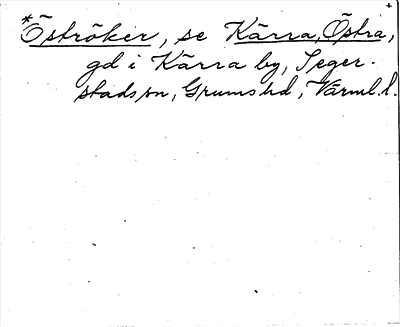 *Öströker, se Kärra, Östra,
gd i Kärra by, Seger-
stads sn, Grums hd, Värml. l.